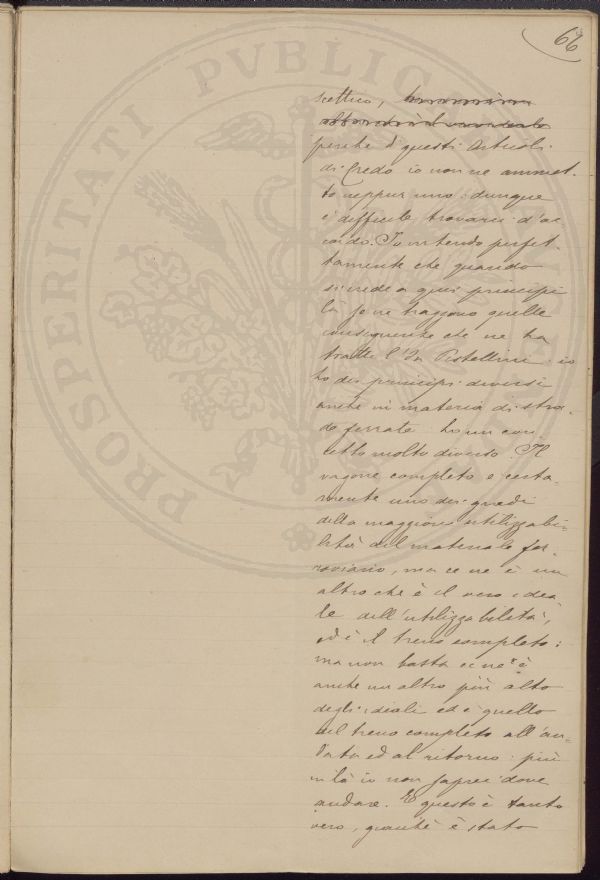 66
PROSPERITATI PVBLICAE
scettico,
perchè di questi Articoli
di Credo io non ne ammet-
to neppur uno: dunque
è difficile trovarci d'ac
cordo. Io intendo perfet-
tamente che quando
si crede a quei principi
là se ne traggono quelle
conseguenze che ne ha
tratte l'On Pestellini: io
ho dei principi diversi
anche in materia di stra-
de ferrate ho un con
cetto molto diverso. Il
vagone completo è certa-
mente uno dei gradi
della maggiore utilizzabi-
lità del materiale fer-
roviario, ma ce ne è un
altro che è il vero idea
le dell'utilizzabilità,
ed è il treno completo:
ma non basta ce ne è
anche un altro più alto
degli ideali ed è quello
del treno completo all'an-
data ed al ritorno: più
in là io non saprei dove
andare. E questo è tanto
vero, quanto è stato